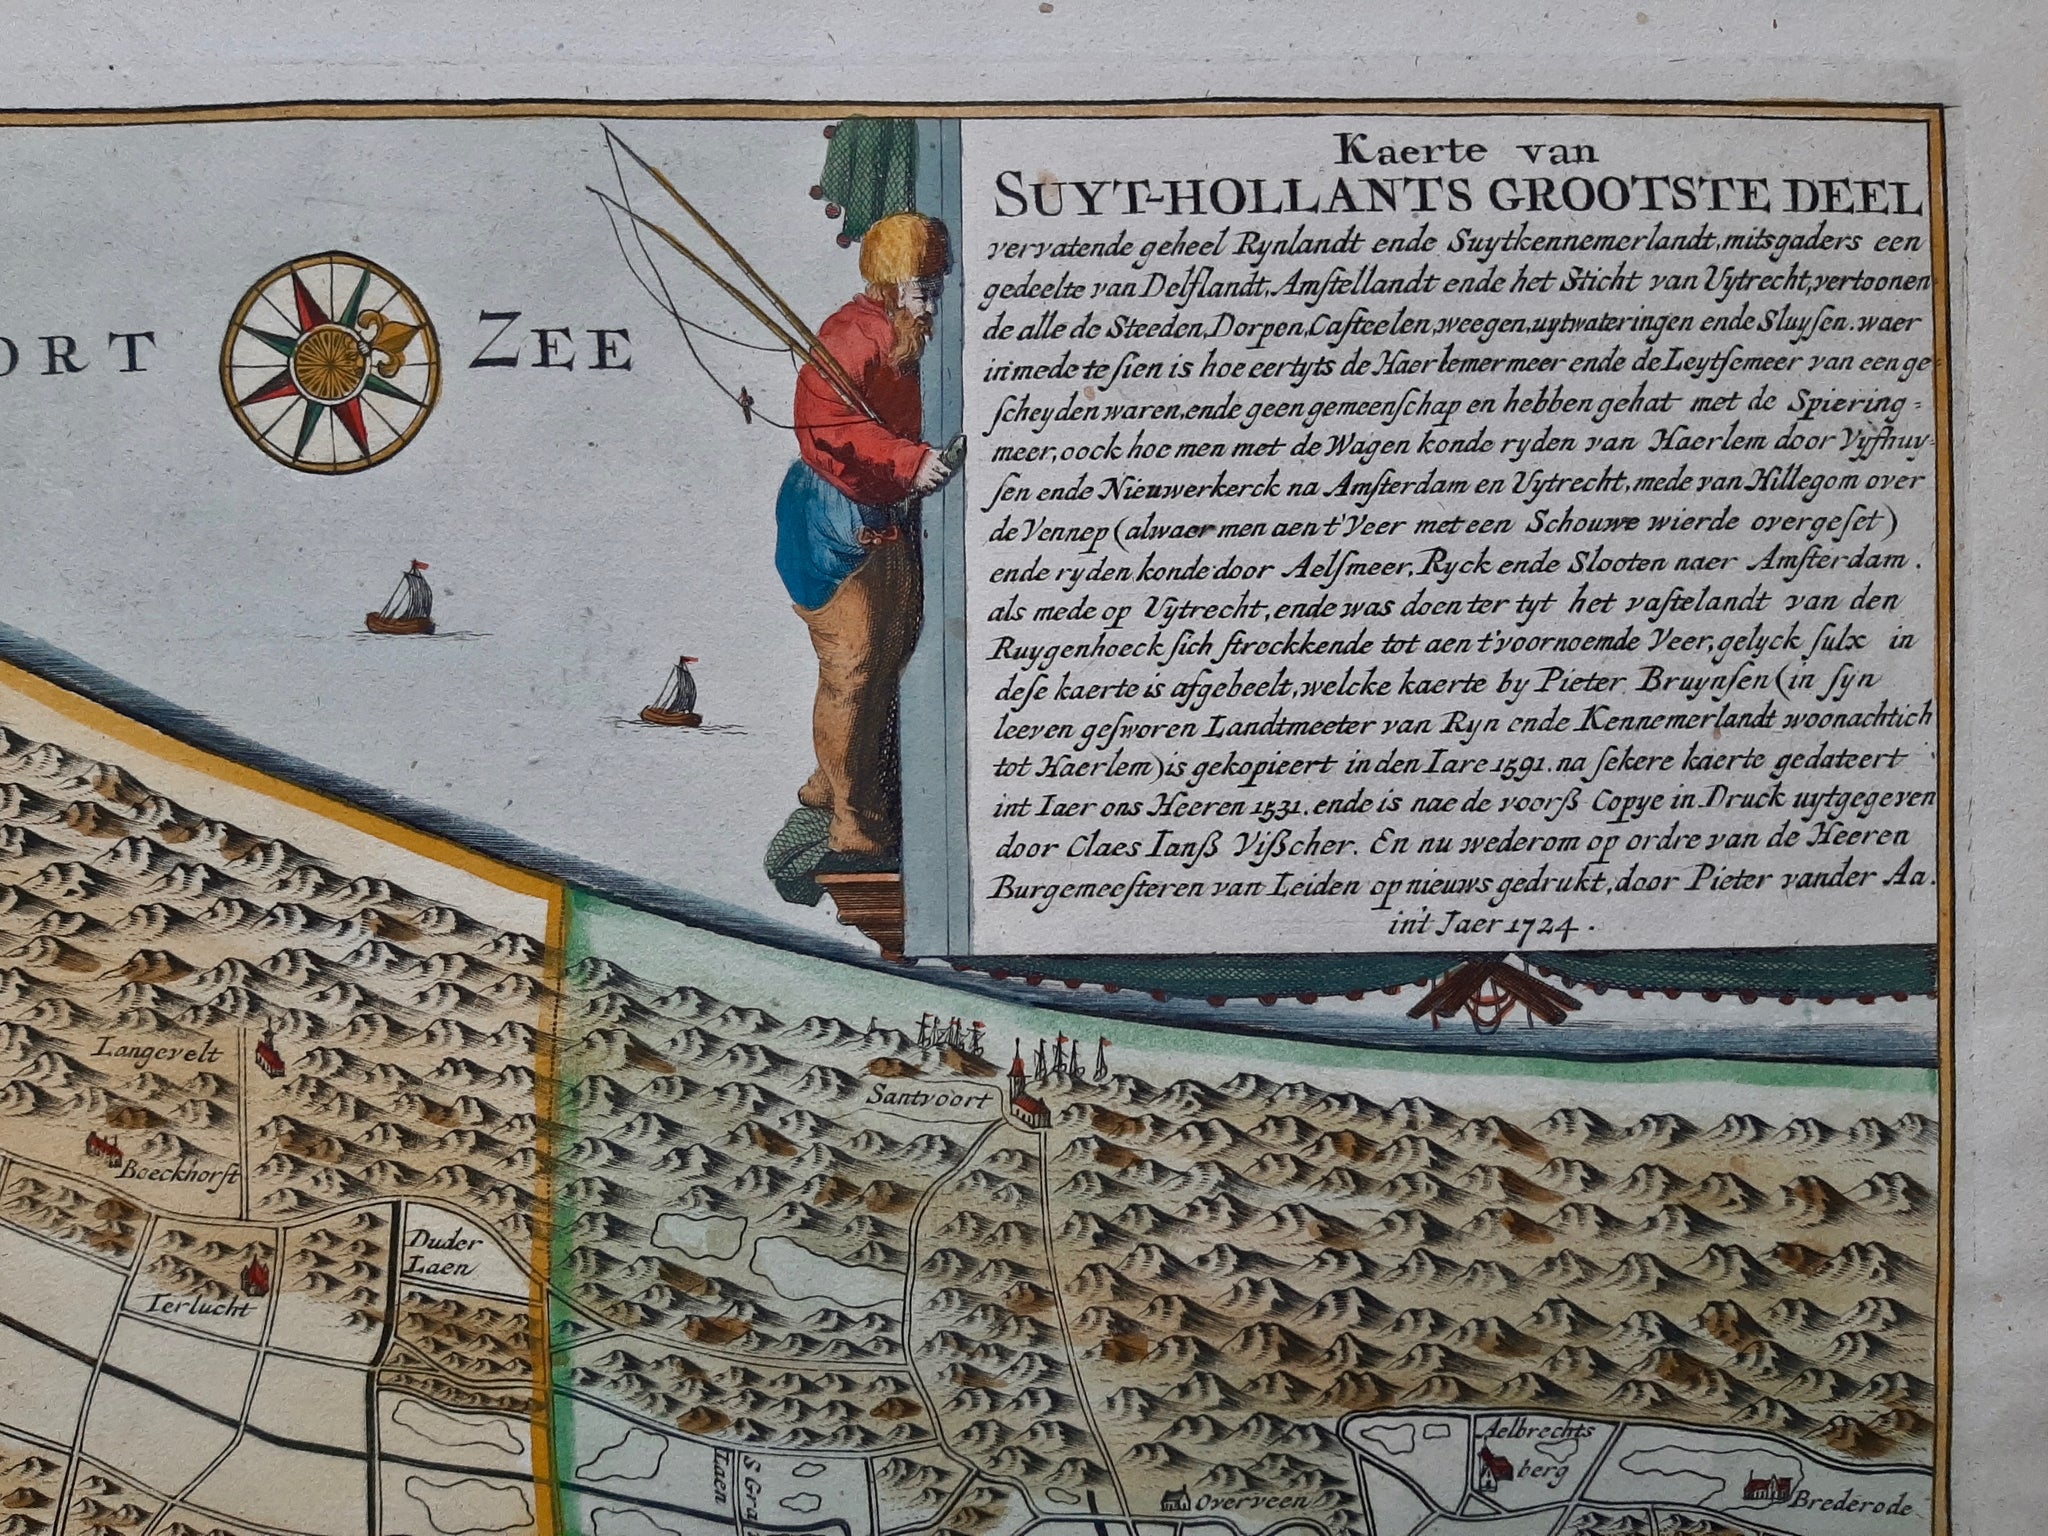 Kaerte van
SUYT-HOLLANTS GROOTSTE DEEL
vervatende geheel Rynlandt ende Suytkennemerlandt, mitsgaders een
gedeelte van Delflandt, Amſtellandt ende het Sticht van Uytrecht, vertoonen-
de alle de Steeden, Dorpen, Caſteelen, weegen, uytwateringen ende Sluyſen. waer
in mede te ſien is hoe eertyts de Haerlemermeer ende de Leytſemeer van een ge-
ſcheyden waren, ende geen gemeenſchap en hebben gehat met de Spiering-
meer, oock hoe men met de Wagen konde ryden van Haerlem door Vyfhuy-
ſen ende Nieuwerkerck na Amſterdam en Uytrecht, mede van Hillegom over
de Vennep (alwaer men aen t'Veer met een Schouwe wierde overgeſet)
ende ryden konde door Aelſmeer, Ryck ende Slooten naer Amſterdam.
als mede op Uytrecht, ende was doen ter tyt het vaſtelandt van den
Ruygenhoeck ſich ſtreckkende tot aen t'voornoemde Veer, gelyck ſulx in
deſe kaerte is afgebeelt, welcke kaerte by Pieter Bruynſen (in ſyn
leeven geſworen Landtmeeter van Ryn ende Kennemerlandt woonachtich
tot Haerlem) is gekopieert in den Iare 1591. na ſekere kaerte gedateert
int Iaer ons Heeren 1531. ende is nae de voorß Copye in Druck uytgegeven
door Claes Ianß Vißcher. En nu wederom op ordre van de Heeren
Burgemeeſteren van Leiden op nieuws gedrukt, door Pieter vander Aa.
in't Jaer 1724.
ORT ZEE
Langevelt
Santvoort
Boeckhorſt
Duder
Laen
Ierlucht
Aelbrechts
berg
S Gra
Laen
Overveen
Brederode